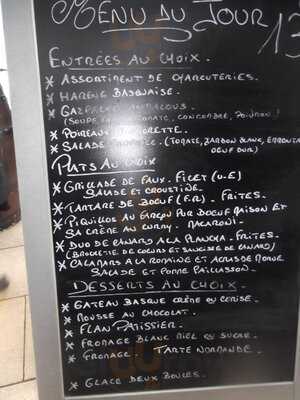 MENU DU JOUR 13
ENTRÉES AU CHOIX.
* ASSORTIMENT DE CHARCUTERIES.
* HARENG BASQUAISE.
* GAZPACHO ANDALOUS.
(SOUPE TOMATE, CONCOMBRE, POIVRON)
* POIREAUX
* SALADE (TOMATE, JAMBON BLANC,
OEUF DUR)
PLATS AU CHOIX
* GRILLADE DE FAUX-FILET (U.E)
SALADE ET CROUSTINE.
* TARTARE DE BOEUF (F.R) - FRITES.
* PIQUILLOS AU PUR BOEUF MAISON ET
SA CRÈME AU CURRY. MACARONI.
* DUO DE CANARD A LA PLANCHA. FRITES.
(BROCHETTE DE COEURS ET SAUCISSE DE CANARD)
* CALAMARS A LA ROMAINE ET MORUE
SALADE ET POMME PAILLASSON.
DESSERTS AU CHOIX.
* GATEAU BASQUE CRÈME OU CERISE.
* MOUSSE AU CHOCOLAT.
* FLAN PATISSIER.
* FROMAGE BLANC MIEL OU SUCRE.
* FROMAGE. TARTE NORMANDE.
* GLACE DEUX BOULES.